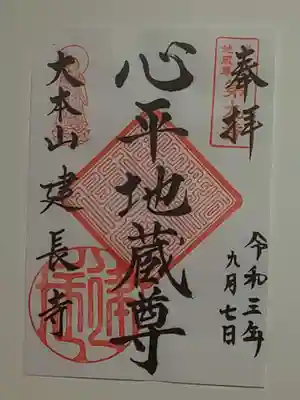 奉拝
令和三年
九月七日
心平地蔵尊
大本山建長寺